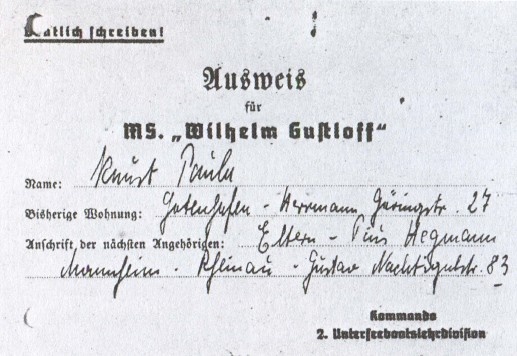 atlich schreiben!
Ausweis
für
MS. „Wilhelm Gustloff“
Name: Knust Paula
Bisherige Wohnung: Gotenhafen - Herrmann Göringstr. 27
Anschrift, der nächsten Angehörigen: Eltern - Pius Hegmann
Mannheim - Rheinau - Gustav Nachtigalstr. 83
Kommando
2. Unterseebootslehrdivision